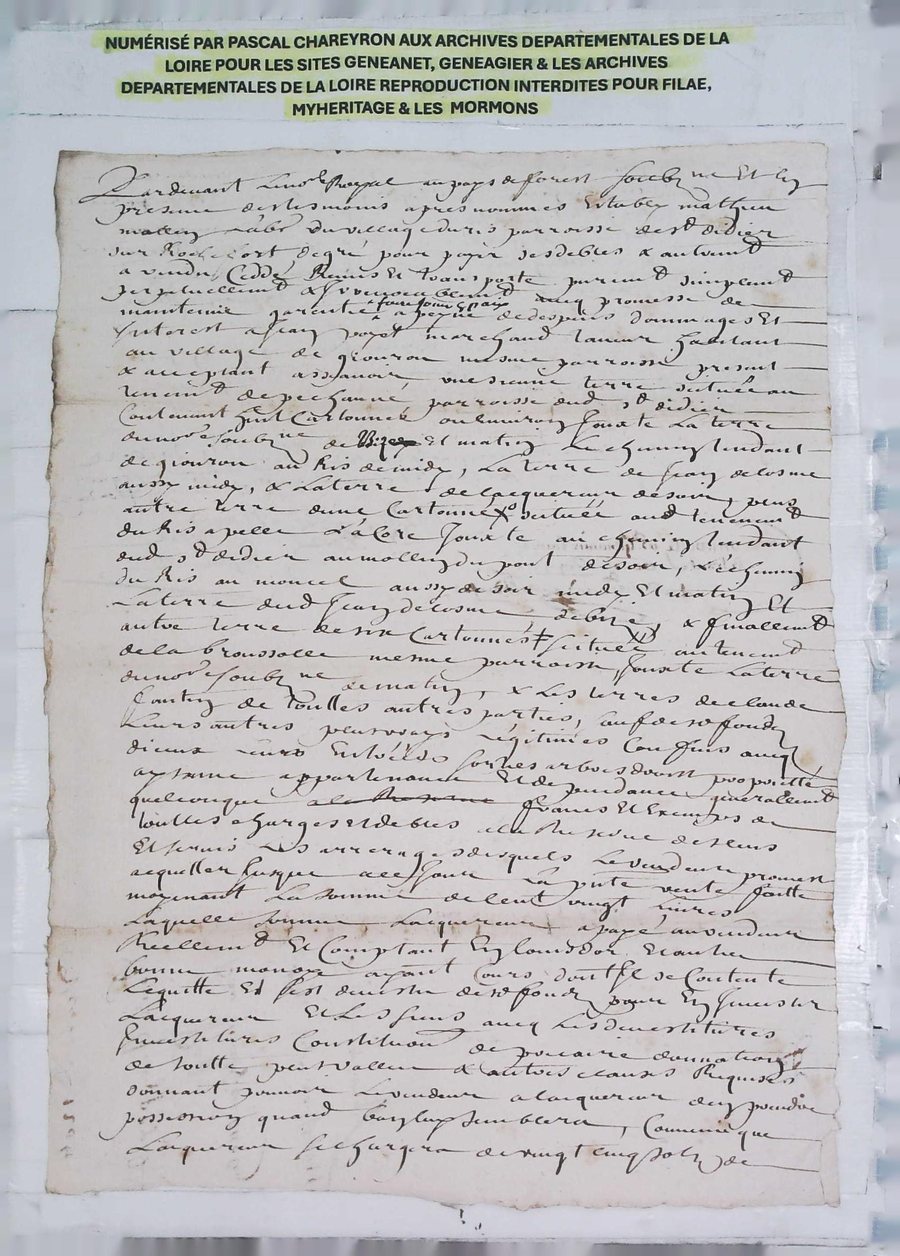 NUMÉRISÉ PAR PASCAL CHAREYRON AUX ARCHIVES DEPARTEMENTALES DE LA
LOIRE POUR LES SITES GENEANET, GENEAGIER & LES ARCHIVES
DEPARTEMENTALES DE LA LOIRE REPRODUCTION INTERDITES POUR FILAE,
MYHERITAGE & LES MORMONS
Pardevant le no.re Royal au pays de forest soubz.ne Et En
presence des tesmoins apres nommes Estably mathieu
lab.r du village du ris parroisse de s.t didier
sur Rochefort, de gré pour payer ses debtes & autrem.t
a vendu Ceddé Remis Et transporté purem.t simplem.t
perpetuellem.t & Irrevocablem.t avecq promesse de
maintenir garentir a peyne de despens dommages Et
Interest a Jean marchand taneur habitant
au village de giouron mesme parroisse present
& acceptant assavoir, une sienne terre située au
tenem.t de parroisse dud. s.t didier
Contenant huit Cartonnés ou Environ Jouxte la terre
dud no.re soubz.ne de Bize Et matin le chemin tendant
de giouron au Ris de midy, La terre de Jean delosme
aussy midy, & La terre de lacquereur de soir, plus
autre terre dune Cartonné située aud. tenement
du Ris apellé Lacore Jouxte au chemin tendant
dud. s.t didier au molling du pont de soir, Le chemin
du Ris au moncel aussy de soir midy Et matin Et
La terre dud. Jean delosme de bize, & finallem.t
autre terre de six Cartonnés située au tenem.t
de la broussolle mesme parroisse, Jouxte La terre
dud no.re soubz.ne de matin, & Les terres de claude
de touttes autres parties, sauf desd. fondz
Leurs autres plus vrais Légitimes Confins avecq
dieux Leurs Entrées sorties arbres droits proprietté
aysance appartenance Et dependance generallem.t
quelconque francs Et Exempts de
touttes charges Et debtes a la Reserve de
Et servis Les arrerages desquels Le vendeur promest
acquitter Jusque a ce Jour La p.nte vente faitte
moyenant La somme de Cent vingt Livres
Laquelle somme Lacquereur a payé au vendeur
Reellem.t Et Comptant En Louis dor Et autre
bonne monoye ayant Cours dont Il se Contente
Lequitte Et sest desmis desd. fondz pour En Investir
Lacquereur Et Les siens avecq Les devestitures
Investitures Constitution de precaire donnation
de toutte plus valleur & autres clauses Requises
donnant pouvoir Le vendeur a lacquereur den prendre
possession quand bon luy semblera, Comme que
Lacquereur se chargera de vingt cinq solz de